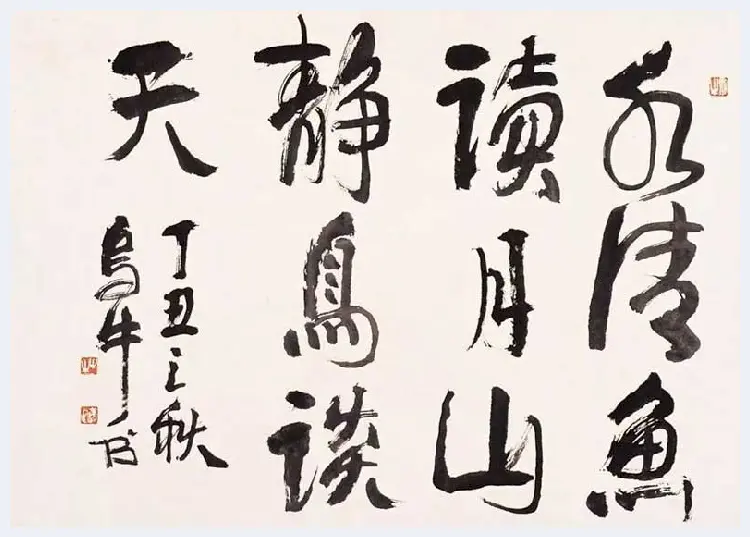 水清魚
讀月山
靜鳥談
天
丁丑之秋
烏牛書